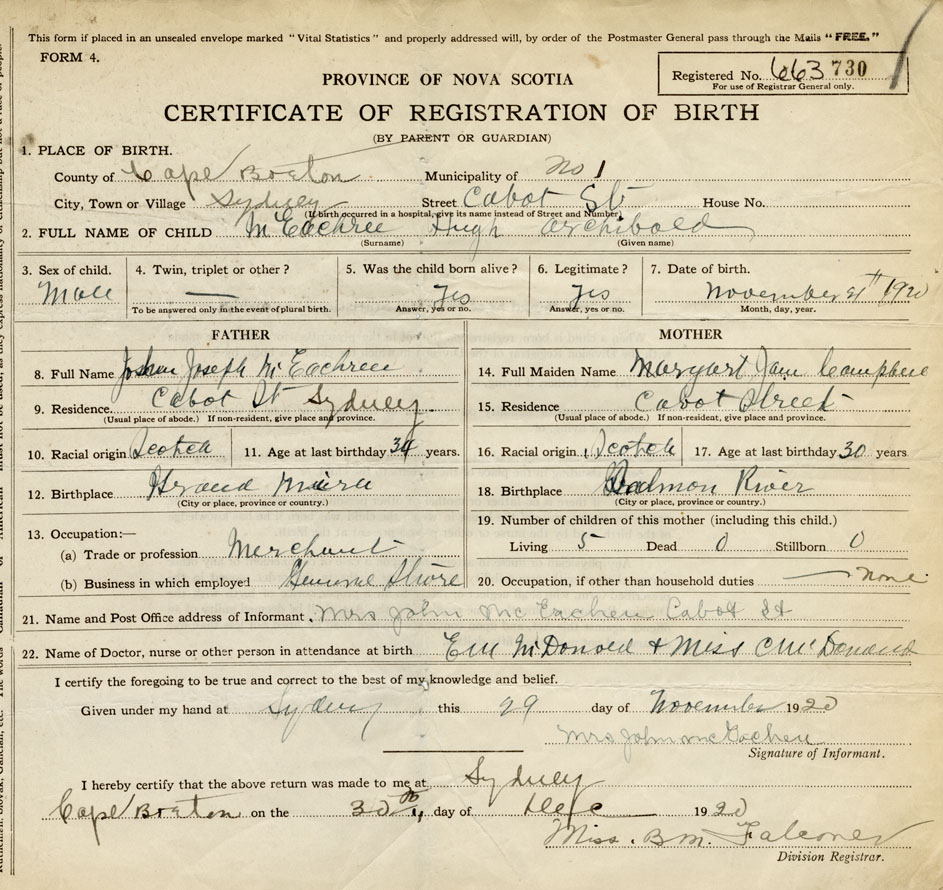 This form if placed in an unsealed envelope marked "Vital Statistics" and properly addressed will, by order of the Postmaster General pass through the Mails "FREE."
FORM 4.
Registered No. 663 730
For use of Registrar General only.
PROVINCE OF NOVA SCOTIA
CERTIFICATE OF REGISTRATION OF BIRTH
(BY PARENT OR GUARDIAN)
1. PLACE OF BIRTH.
County of Cape Breton Municipality of No 1
City, Town or Village Sydney Street Cabot St House No.
(If birth occurred in a hospital, give its name instead of Street and Number)
2. FULL NAME OF CHILD McEachree Hugh Archibald
(Surname) (Given name)
3. Sex of child. 4. Twin, triplet or other? 5. Was the child born alive? 6. Legitimate? 7. Date of birth.
Male — Yes Yes November 1920
To be answered only in the event of plural birth. Answer, yes or no. Answer, yes or no. Month, day, year.
FATHER MOTHER
8. Full Name Joseph McEachree 14. Full Maiden Name Margart Jane Campbell
9. Residence. Cabot St Sydney. 15. Residence Cabot Street
(Usual place of abode.) If non-resident, give place and province. (Usual place of abode.) If non-resident, give place and province.
10. Racial origin Scotch 11. Age at last birthday 34 years. 16. Racial origin Scotch 17. Age at last birthday 30 years
12. Birthplace 18. Birthplace Salmon River
(City or place, province or country.) (City or place, province or country.)
13. Occupation:— 19. Number of children of this mother (including this child.)
(a) Trade or profession Merchant Living 5 Dead 0 Stillborn 0
(b) Business in which employed 20. Occupation, if other than household duties — none
21. Name and Post Office address of Informant. Mrs John McEachern Cabot St
22. Name of Doctor, nurse or other person in attendance at birth McDonald + Miss McDonald
I certify the foregoing to be true and correct to the best of my knowledge and belief.
Given under my hand at Sydney this 29 day of November 1920
Mrs John McEachern
Signature of Informant.
I hereby certify that the above return was made to me at Sydney
Cape Breton on the 30th day of 1920
Miss. B M. Falconer
Division Registrar.